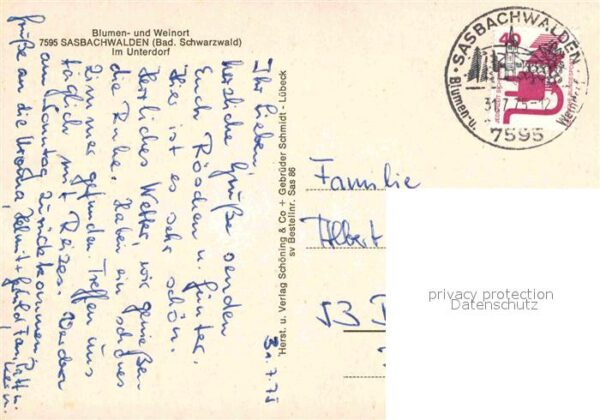 Blumen- und Weinort
7595 SASBACHWALDEN (Bad. Schwarzwald)
Im Unterdorf
Ihr Lieben!
herzliche Grüße senden
Euch Röschen u. Günter.
Hier ist es sehr schön.
Herrliches Wetter, wir genießen
die Ruhe. Haben ein
Zimmer gefunden. Treffen uns
täglich mit Reizes. Werden
am Sonntag zurückkommen.
Grüße an die
30.7.75
Herst. u. Verlag Schöning & Co + Gebrüder Schmidt - Lübeck
sv Bestellnr. Sas 86
40
SASBACHWALDEN
Blumen-u.
31.7.75-12
7595
Familie
Albert
53
privacy protection
Datenschutz